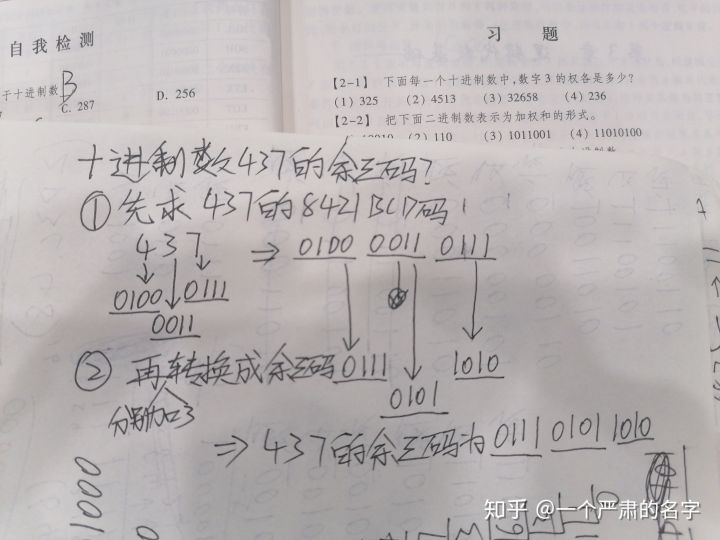 自我检测
于十进制数B
C. 287
D. 256
习 题
【2-1】 下面每一个十进制数中,数字 3 的权各是多少?
(1) 325 (2) 4513 (3) 32658 (4) 236
【2-2】 把下面二进制数表示为加权和的形式。
(2) 110 (3) 1011001 (4) 11010100
十进制数437的余三码?
① 先求 437的8421BCD码
4 3 7 ⇒ 0100 0011 0111
0100 0111
0011
② 再转换成余三码 0111 1010
0101
分别加3
⇒ 437的余三码为 0111 0101 1010
1000
知乎 @一个严肃的名字